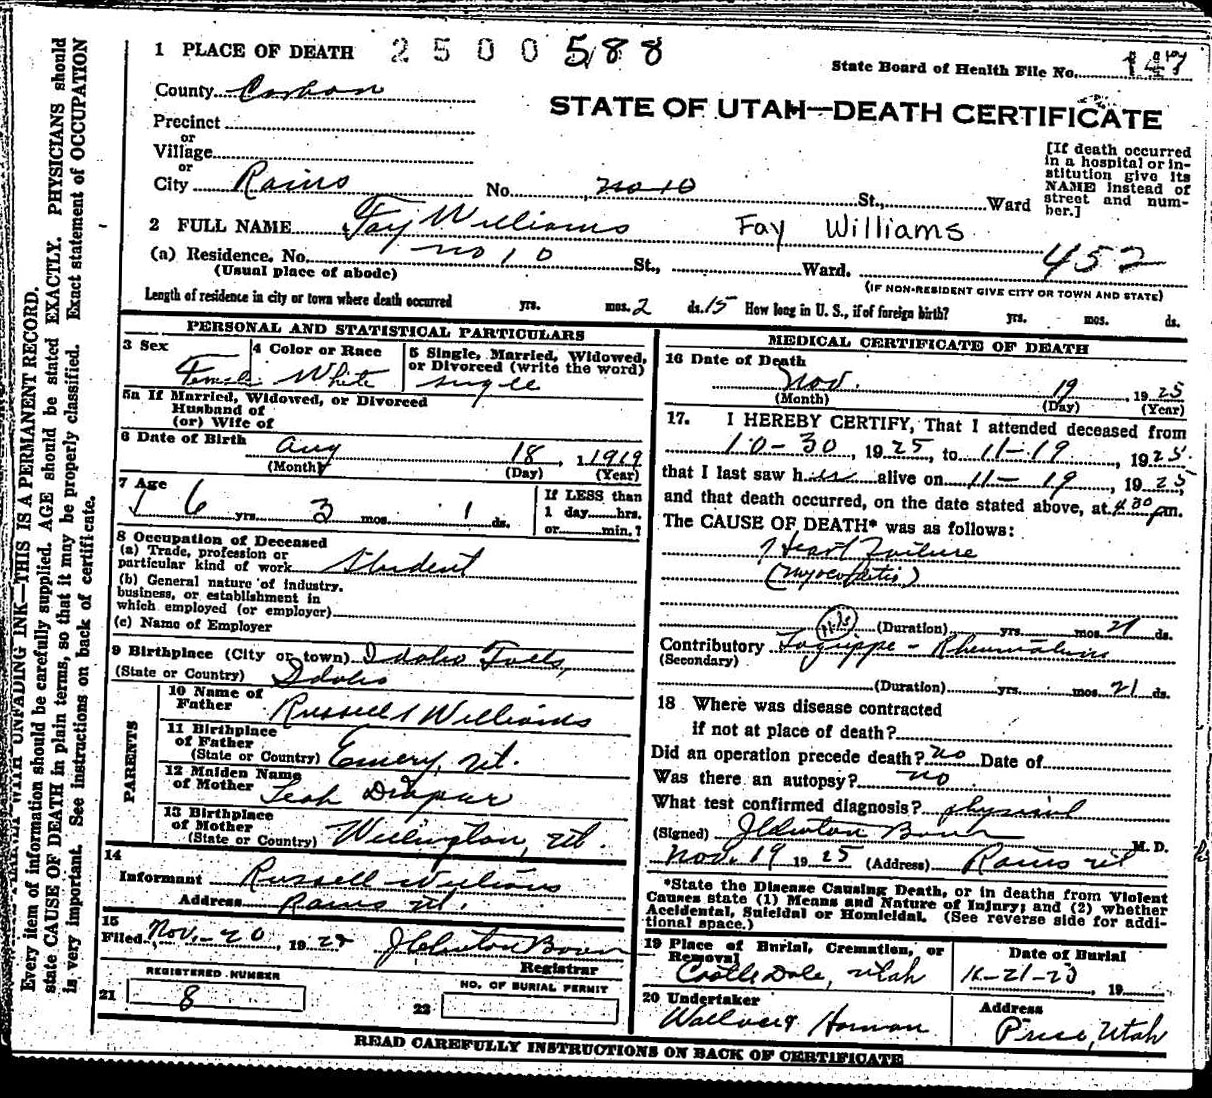 1 PLACE OF DEATH 2500588
State Board of Health File No. 147
County Carbon
STATE OF UTAH—DEATH CERTIFICATE
Precinct
or
Village
or
City Rains No. no 10 St., Ward
[If death occurred in a hospital or institution give its NAME instead of street and number.]
2 FULL NAME Fay Williams Fay Williams
(a) Residence. No. no 10 St., Ward. 452
(Usual place of abode) (IF NON-RESIDENT GIVE CITY OR TOWN AND STATE)
Length of residence in city or town where death occurred yrs. mos. 2 ds. 15 How long in U. S., if of foreign birth? yrs. mos. ds.
PERSONAL AND STATISTICAL PARTICULARS
3 Sex Female
4 Color or Race White
5 Single, Married, Widowed, or Divorced (write the word) single
5a If Married, Widowed, or Divorced
Husband of
(or) Wife of
6 Date of Birth Aug 18, 1919
(Month) (Day) (Year)
7 Age 6 yrs. 3 mos. 1 ds.
If LESS than
1 day......hrs.
or......min.?
8 Occupation of Deceased
(a) Trade, profession or
particular kind of work Student
(b) General nature of industry,
business, or establishment in
which employed (or employer)
(c) Name of Employer
9 Birthplace (City or town) Idaho Falls,
(State or Country) Idaho
PARENTS
10 Name of
Father Russell Williams
11 Birthplace
of Father
(State or Country) Emery, Ut.
12 Maiden Name
of Mother Leah Draper
13 Birthplace
of Mother
(State or Country) Wellington, Ut.
14
Informant Russell Williams
Address Rains Ut.
15
Filed Nov.-20, 1925 J Clinton Bowen
Registrar
REGISTERED NUMBER
21 8
NO. OF BURIAL PERMIT
22
MEDICAL CERTIFICATE OF DEATH
16 Date of Death
Nov. 19, 1925
(Month) (Day) (Year)
17. I HEREBY CERTIFY, That I attended deceased from
10-30, 1925, to 11-19, 1925.
that I last saw h alive on 11-19, 1925,
and that death occurred, on the date stated above, at 4:30 pm.
The CAUSE OF DEATH* was as follows:
Heart Failure
(Myocarditis)
(Duration) yrs. mos. 21 ds.
Contributory Lagrippe - Rheumatism
(Secondary)
(Duration) yrs. mos. 21 ds.
18 Where was disease contracted
if not at place of death?
Did an operation precede death? no Date of
Was there an autopsy? no
What test confirmed diagnosis? physical
(Signed) J Clinton Bowen M. D.
Nov. 19 1925 (Address) Rains Ut
*State the Disease Causing Death, or in deaths from Violent
Causes state (1) Means and Nature of Injury; and (2) whether
Accidental, Suicidal or Homicidal. (See reverse side for addi-
tional space.)
19 Place of Burial, Cremation, or
Removal
Castle Dale, Utah
Date of Burial
11-21-25, 19
20 Undertaker
Wallace & Harmon
Address
Price, Utah
READ CAREFULLY INSTRUCTIONS ON BACK OF CERTIFICATE
UNFADING INK—THIS IS A PERMANENT RECORD.
Every item of information should be carefully supplied. AGE should be stated EXACTLY. PHYSICIANS should
state CAUSE OF DEATH in plain terms, so that it may be properly classified. Exact statement of OCCUPATION
is very important. See instructions on back of certificate.